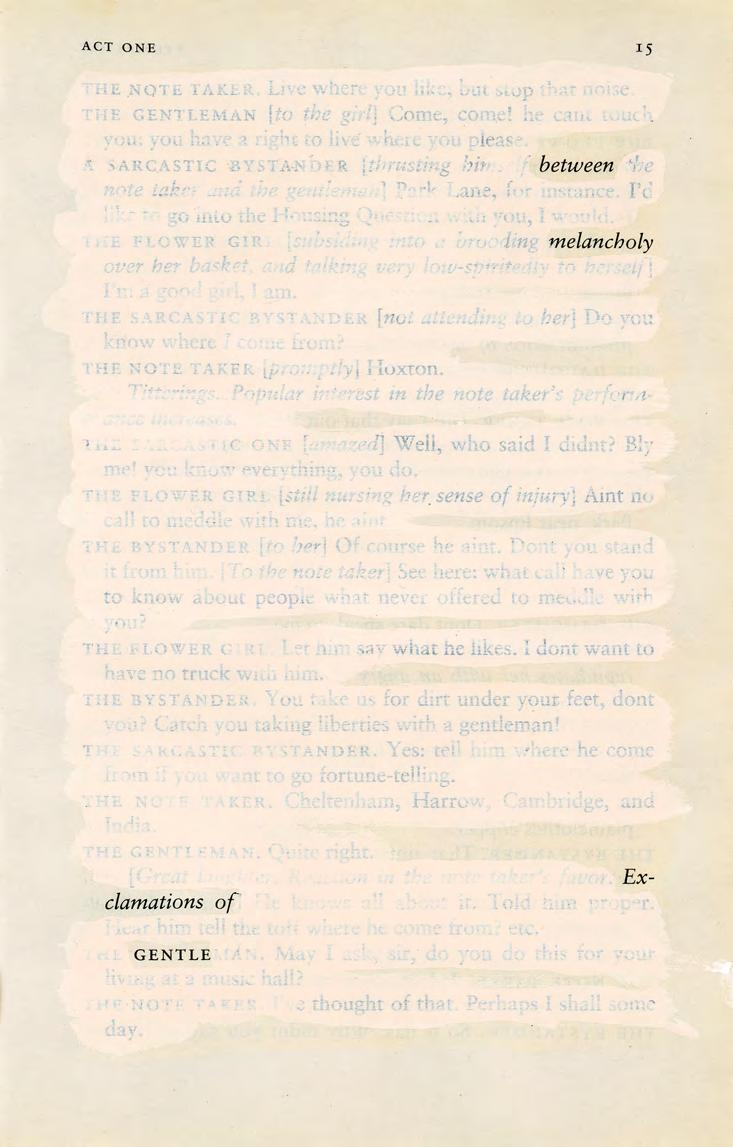 ACT ONE 15
THE NOTE TAKER. Live where you like; but stop that noise.
THE GENTLEMAN [to the girl] Come, come! he cant touch
you: you have a right to live where you please.
A SARCASTIC BYSTANDER [thrusting between the
note taker and the gentleman] Park Lane, for instance. I'd
like to go into the Housing Question with you, I would.
THE FLOWER GIRL [subsiding into a brooding melancholy
over her basket, and talking very low-spiritedly to herself]
I'm a good girl, I am.
THE SARCASTIC BYSTANDER [not attending to her] Do you
know where I come from?
THE NOTE TAKER [promptly] Hoxton.
Titterings. Popular interest in the note taker's perform-
ance increases.
THE SARCASTIC ONE [amazed] Well, who said I didnt? Bly
me! you know everything, you do.
THE FLOWER GIRL [still nursing her sense of injury] Aint no
call to meddle with me, he aint
THE BYSTANDER [to her] Of course he aint. Dont you stand
it from him. [To the note taker] See here: what call have you
to know about people what never offered to meddle with
you?
THE FLOWER GIRL. Let him say what he likes. I dont want to
have no truck with him.
THE BYSTANDER. You take us for dirt under your feet, dont
you? Catch you taking liberties with a gentleman!
THE SARCASTIC BYSTANDER. Yes: tell him where he come
from if you want to go fortune-telling.
THE NOTE TAKER. Cheltenham, Harrow, Cambridge, and
India.
THE GENTLEMAN. Quite right.
[Great laughter. Reaction in the note taker's favor. Ex-
clamations of He knows all about it. Told him proper.
Hear him tell the toff where he come from? etc.
THE GENTLEMAN. May I ask, sir, do you do this for your
living at a music hall?
THE NOTE TAKER. I've thought of that. Perhaps I shall some
day.